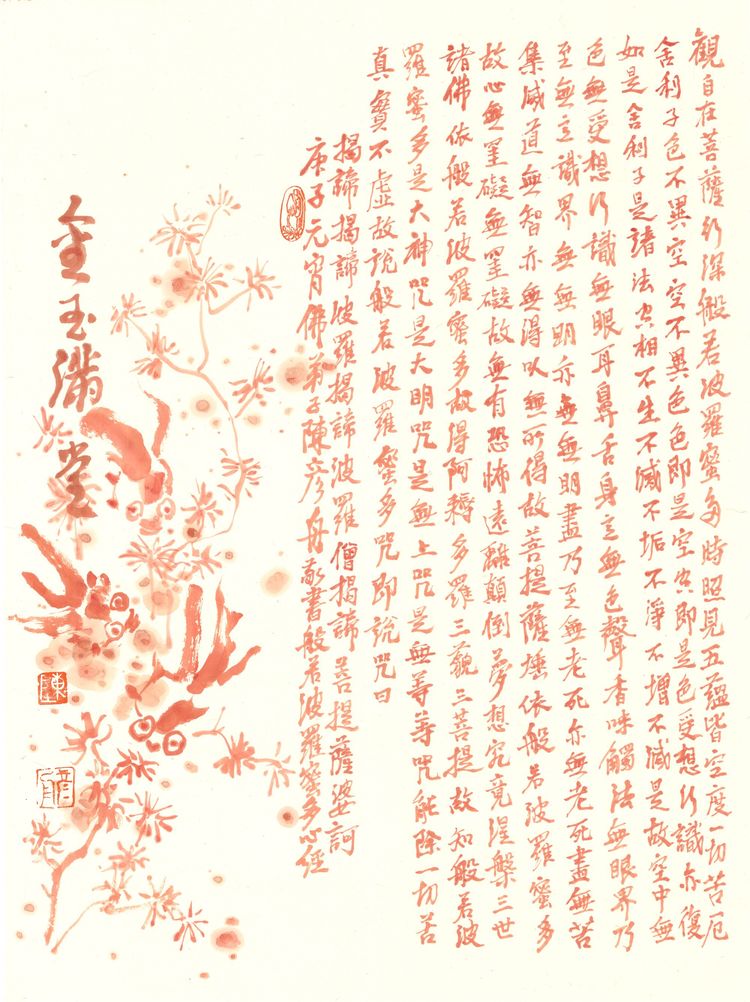 觀自在菩薩行深般若波羅蜜多時照見五蘊皆空度一切苦厄
舍利子色不異空空不異色色即是空空即是色受想行識亦復
如是舍利子是諸法空相不生不滅不垢不淨不增不減是故空中無
色無受想行識無眼耳鼻舌身意無色聲香味觸法無眼界乃
至無意識界無無明亦無無明盡乃至無老死亦無老死盡無苦
集滅道無智亦無得以無所得故菩提薩埵依般若波羅蜜多
故心無罣礙無罣礙故無有恐怖遠離顛倒夢想究竟涅槃三世
諸佛依般若波羅蜜多故得阿耨多羅三藐三菩提故知般若波
羅蜜多是大神咒是大明咒是無上咒是無等等咒能除一切苦
真實不虛故說般若波羅蜜多咒即說咒曰
揭諦揭諦波羅揭諦波羅僧揭諦菩提薩婆訶
庚子元宵佛弟子陳彥舟敬書般若波羅蜜多心經
金玉滿堂